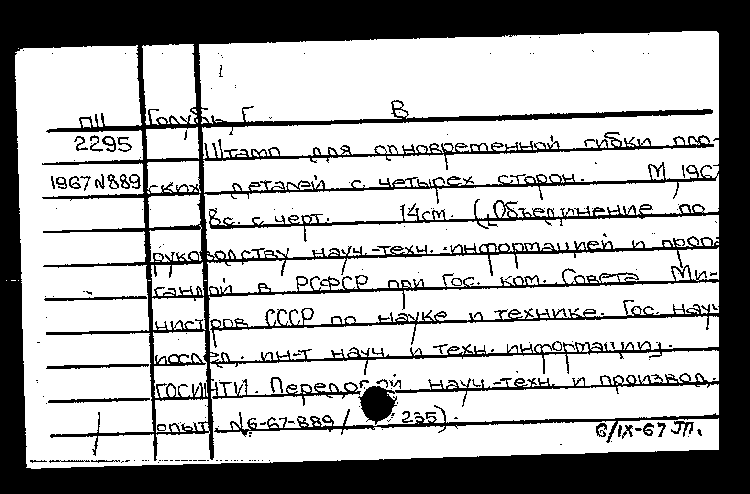 П11 Голубь, Г. В
2295 Штамп для одновременной гибки плос-
1967 N889 ских деталей с четырех сторон. М, 196
8с. с черт. 14см. (Объединение по
руководству науч.-техн. информацией и пропа
гандой в РСФСР при Гос. ком. Совета Ми-
нистров СССР по науке и технике. Гос. науч
исслед. ин-т науч. и техн. информации.
ГОСИНТИ. Передовой науч.-техн. и производ.
опыт. N6-67-889/ 235).
6/IX-67